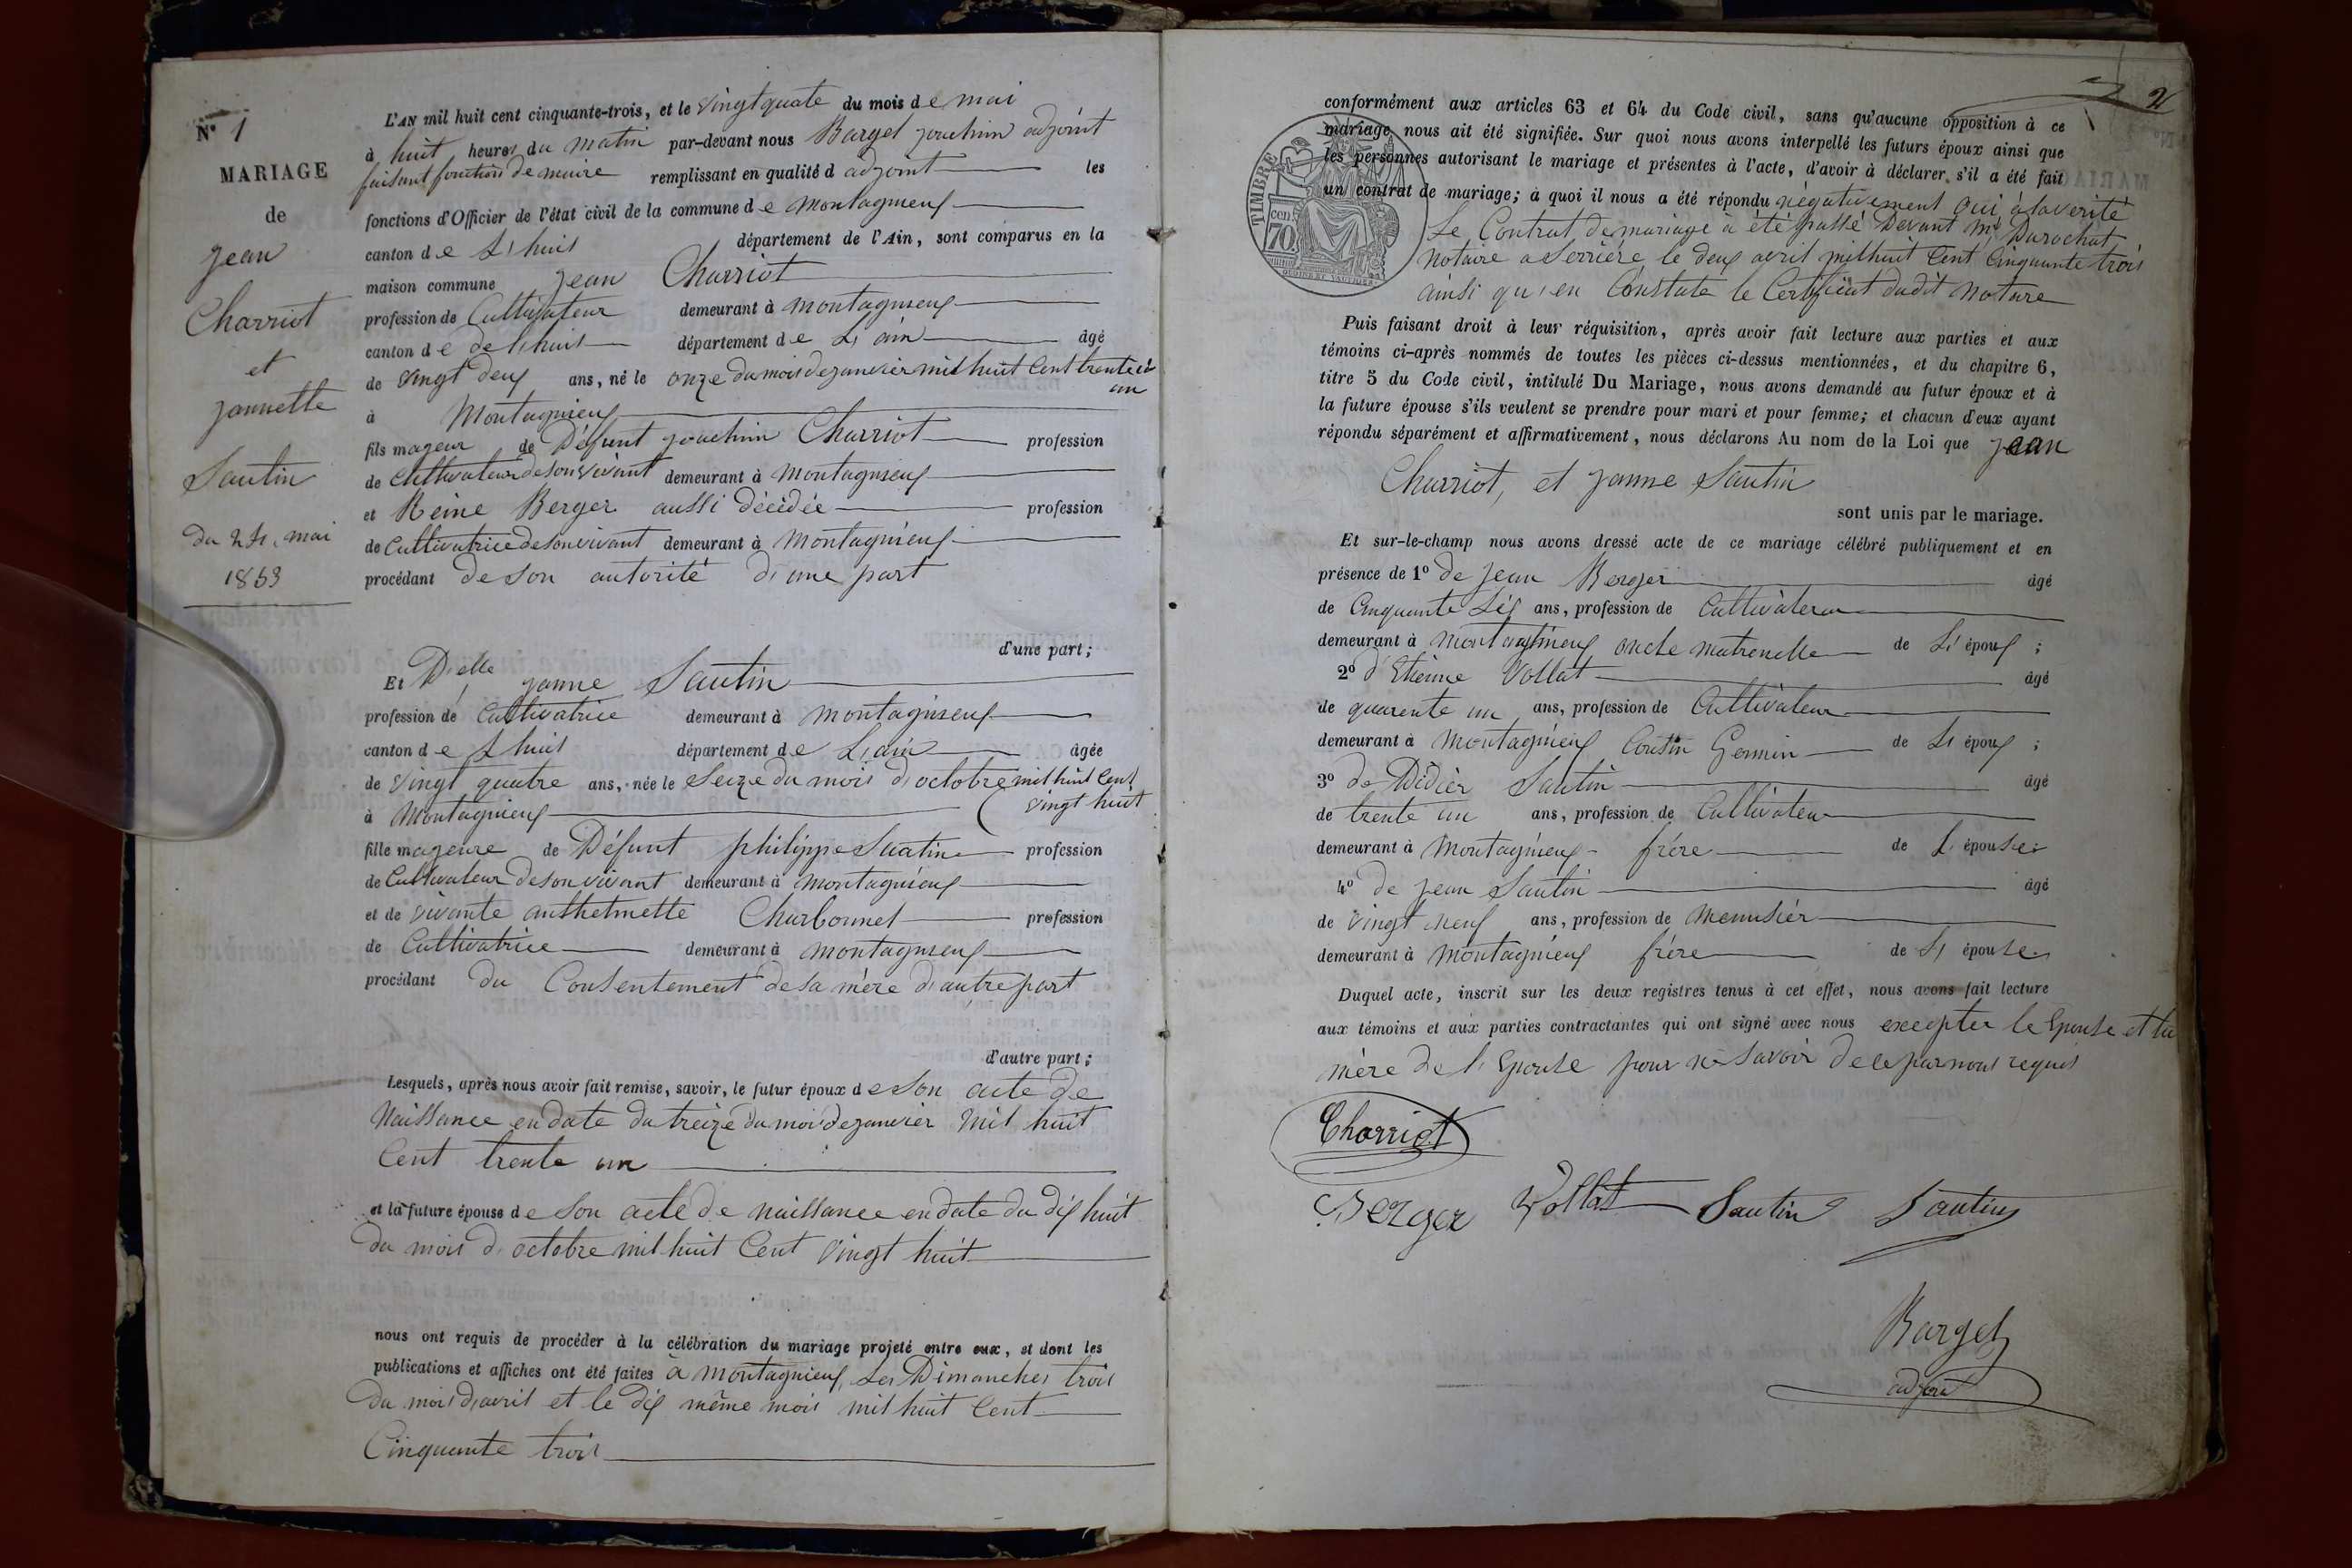 N° 1
MARIAGE
de
jean
Charriot
et
jannette
Sautin
du 24 mai
1853
L'AN mil huit cent cinquante-trois, et le vingt quate du mois de mai
à huit heures du matin par-devant nous Barget joachim adjoint
faisant fonction de maire remplissant en qualité d adjoint les
fonctions d'Officier de l'état civil de la commune de montagnieux
canton de L'huis département de l'Ain, sont comparus en la
maison commune jean Charriot
profession de Cultivateur demeurant à montagnieux
canton de de l'huis département de L'ain âgé
de vingt deux ans, né le onze du mois de janvier mil huit Cent trente et
un
à Montagnieux
fils mageur de Défunt joachim Charriot profession
de Cultivateur de son vivant demeurant à montagnieux
et Réine Berger aussi décédée profession
de Cultivatrice de son vivant demeurant à montagnieux
procédant de son autorité d'une part
d'une part;
Et Delle janne Sautin
profession de Cultivatrice demeurant à montagnieux
canton de L'huis département de L'ain âgée
de vingt quatre ans, née le Seize du mois d'octobre mil huit Cent
vingt huit
à Montagnieux
fille mageure de Défunt philippe Sautin profession
de Cultivateur de son vivant demeurant à montagnieux
et de vivante anthelmette Charbonnet profession
de Cultivatrice demeurant à montagnieux
procédant du Consentement de sa mère d'autre part
d'autre part;
Lesquels, après nous avoir fait remise, savoir, le futur époux de son acte de
Naissance en date du treize du moi de janvier mil huit
Cent trente un
et la future épouse de son acte de naissance en date du dix huit
du mois d'octobre mil huit Cent vingt huit
nous ont requis de procéder à la célébration du mariage projeté entre eux, et dont les
publications et affiches ont été faites à montagnieux, Les Dimanches trois
du mois d'avril et le dix même mois mil huit Cent
Cinquante trois
2
conformément aux articles 63 et 64 du Code civil, sans qu'aucune opposition à ce
mariage nous ait été signifiée. Sur quoi nous avons interpellé les futurs époux ainsi que
les personnes autorisant le mariage et présentes à l'acte, d'avoir à déclarer s'il a été fait
un contrat de mariage; à quoi il nous a été répondu négativement oui, à la verité
Le Contrat de mariage à été passé Devant Me Durochat
Notaire a Serrière le deux avril mil huit Cent Cinquante trois
ainsi qu'en Constate le Certificat dudit Notaire
TIMBRE
cen. 70
Puis faisant droit à leur réquisition, après avoir fait lecture aux parties et aux
témoins ci-après nommés de toutes les pièces ci-dessus mentionnées, et du chapitre 6,
titre 5 du Code civil, intitulé Du Mariage, nous avons demandé au futur époux et à
la future épouse s'ils veulent se prendre pour mari et pour femme; et chacun d'eux ayant
répondu séparément et affirmativement, nous déclarons Au nom de la Loi que jean
Charriot, et janne Sautin
sont unis par le mariage.
Et sur-le-champ nous avons dressé acte de ce mariage célébré publiquement et en
présence de 1° de jean Berger âgé
de Cinquante Six ans, profession de Cultivateur
demeurant à montagnieux oncle matrenelle de L'époux;
2° d'Etienne Vollat âgé
de quarente un ans, profession de Cultivateur
demeurant à Montagnieux Cousin Germin de L'époux;
3° de Didier Sautin âgé
de trente un ans, profession de Cultivateur
demeurant à Montagnieux frére de L'épouse;
4° de jean Sautin âgé
de vingt neuf ans, profession de menusiér
demeurant à Montagnieux frére de L'épouse
Duquel acte, inscrit sur les deux registres tenus à cet effet, nous avons fait lecture
aux témoins et aux parties contractantes qui ont signé avec nous excepter le Epouse et la
mère de l'Epouse pour ne savoir de ce par nous requis
Charriot
Berger Vollat Sautin Sautin
Barget
adjoint